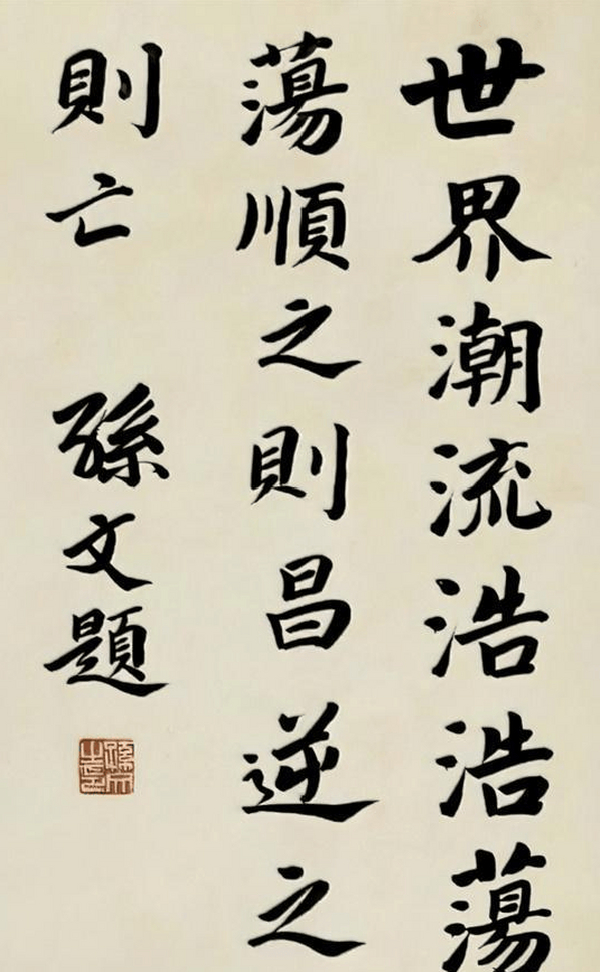 世界潮流浩浩蕩
蕩順之則昌逆之
則亡
孫文題
孫文之璽